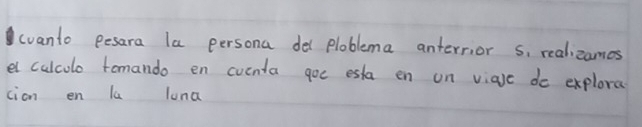 cuanto pesara la persona del ploblema anterrior si realizamos
el calculo tomando en cuenta que esta en un viaje de explora
cion en la luna